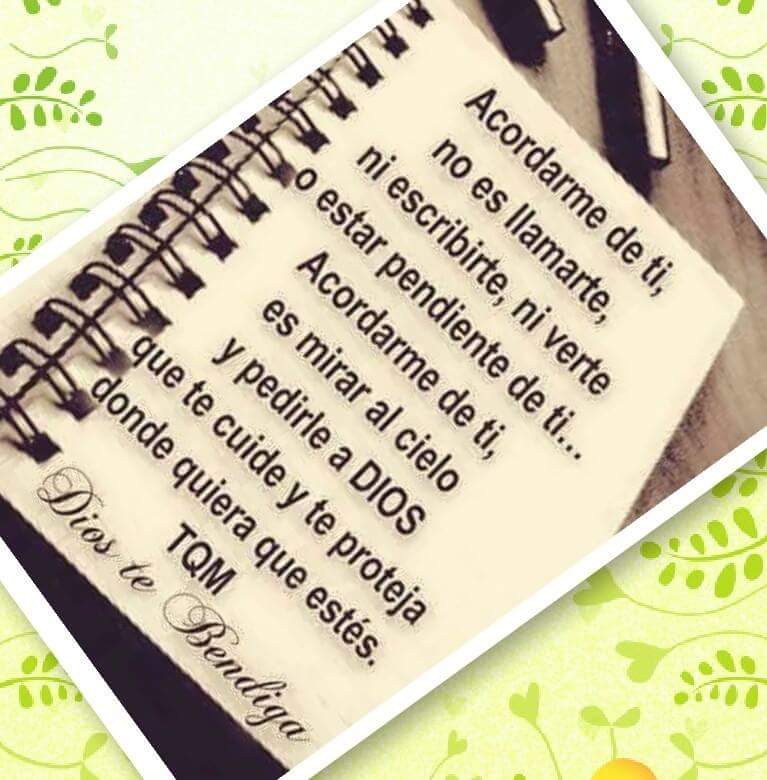 Acordarme de ti,
no es llamarte,
ni escribirte, ni verte
o estar pendiente de ti...
Acordarme de ti,
es mirar al cielo
y pedirle a DIOS
que te cuide y te proteja
donde quiera que estés.
TQM
Dios te Bendiga